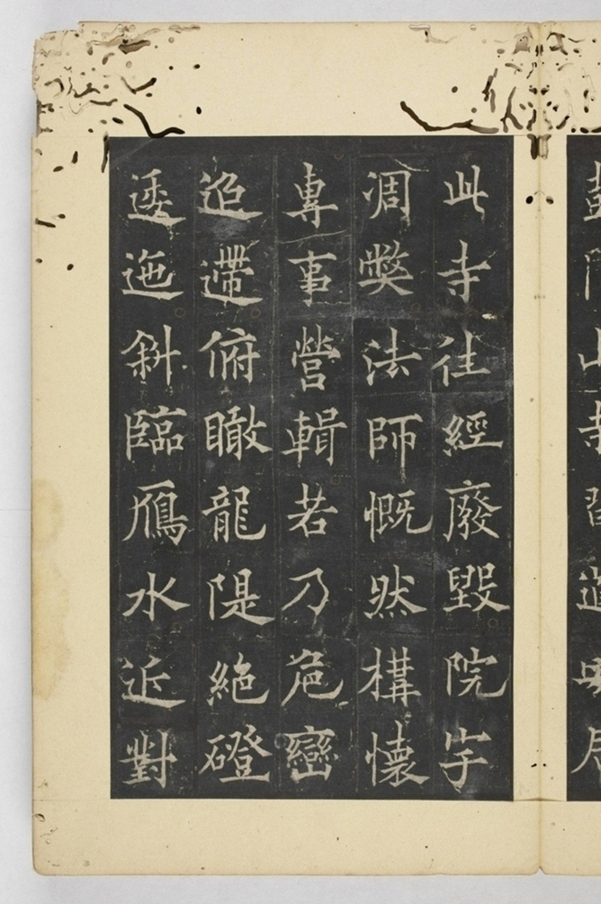 此寺往經廢毀院宇
凋弊法師慨然構懷
專事營輯若乃危巒
迢遰俯瞰龍隄絶磴
逶迤斜臨鴈水近對